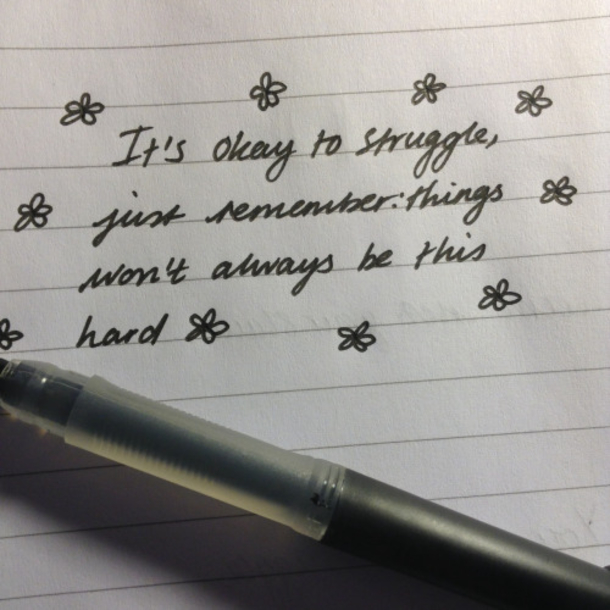 It's okay to struggle,
just remember: things
won't always be this
hard